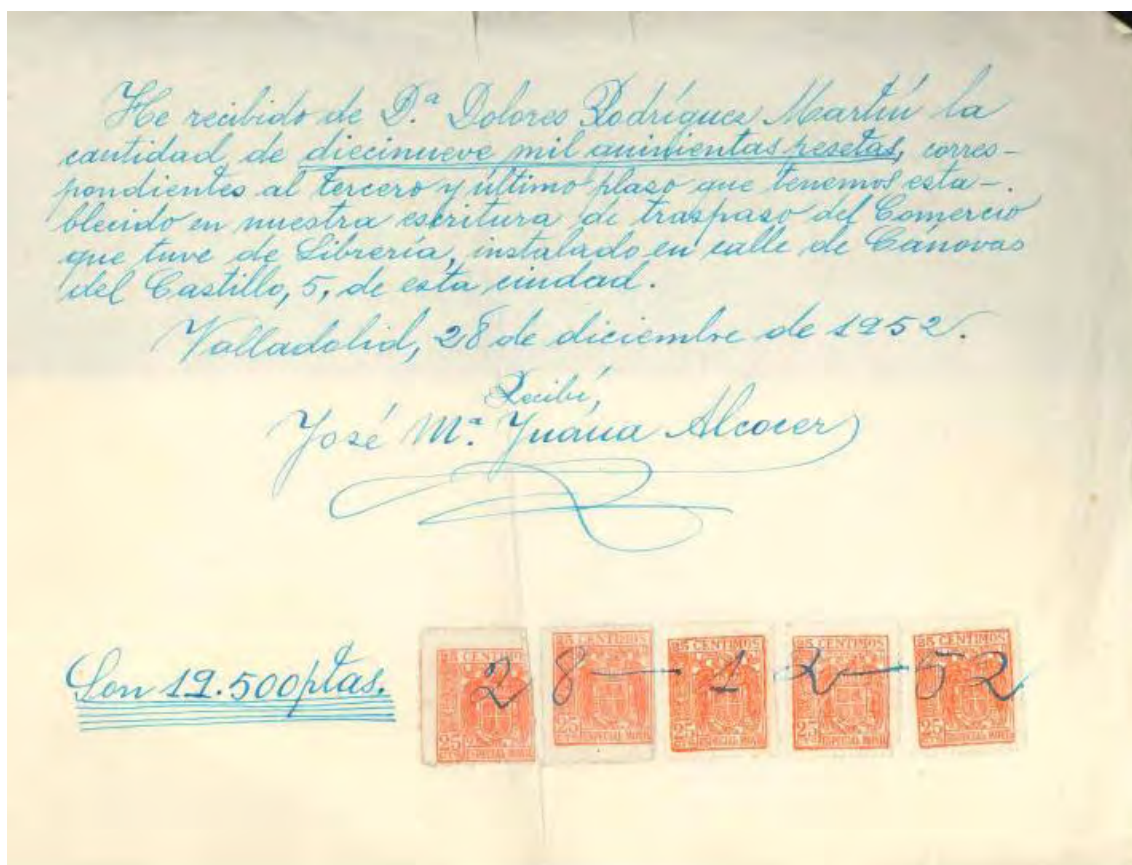 He recibido de D.ª Dolores Rodríguez Martín la
cantidad de diecinueve mil quinientas pesetas, corres-
pondientes al tercero y último plazo que tenemos esta-
blecido en nuestra escritura de traspaso del Comercio
que tuve de Librería, instalado en calle de Cánovas
del Castillo, 5, de esta ciudad.
Valladolid, 28 de diciembre de 1952.
Recibí,
José Mª. Juána Alcocer
Son 19.500 ptas.
25 CENTIMOS 25 CENTIMOS 25 CENTIMOS 25 CENTIMOS 25 CENTIMOS
28-12-52
25 ESPECIAL MOVIL 25 ESPECIAL MOVIL 25 ESPECIAL MOVIL 25 ESPECIAL MOVIL 25 ESPECIAL MOVIL